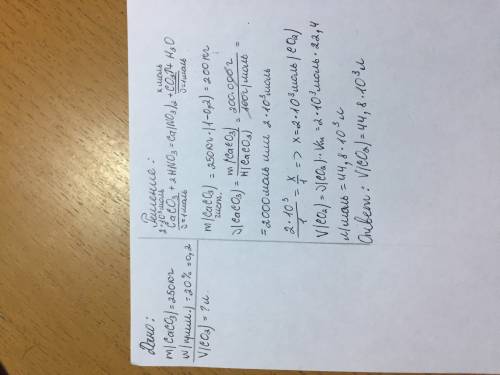 Дано:
m(CaCO3)=250кг
w(прим.)=20%=0,2
V(CO2)=?л.
Решение:
2·10³моль х моль
CaCO3+2HNO3=Ca(NO3)2+CO2↑+H2O
ν=1моль ν=1моль
m(CaCO3)=250кг·(1-0,2)=200кг
чист.
ν(CaCO3)=m(CaCO3)/M(CaCO3)=200.000г/100г/моль=
=2000моль или 2·10³моль
2·10³/1=x/1=>x=2·10³моль(CO2)
V(CO2)=ν(CO2)·Vм=2·10³моль·22,4
л/моль=44,8·10³л
Ответ: V(CO2)=44,8·10³л